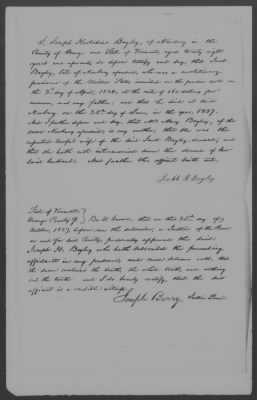 I, Joseph Hutchins Bayley, of Newbury in the
County of Orange and State of Vermont, aged thirty eight
years and upwards do depose testify and say, that Jacob
Bayley, late of Newbury aforesaid, who was a revolutionary
pensioner of the United States inscribed on the pension roll on
the 3d day of April, 1824, at the rate of 96 dollars per
annum, was my father; and that he died at said
Newbury on the 28th day of June, in the year 1837.
And I further depose and say, that Mrs Mary Bayley, of the
same Newbury aforesaid is my mother; that she was the
reputed lawful wife of the said Jacob Bayley, deceased; and
that she hath not intermarried since the decease of her
said husband. And further this affiant saith not.
Joseph H Bayley
State of Vermont,
Orange County Ss Be it known, that on this day of
October, 1837, before me the subscriber, a Justice of the Peace
in and for said County, personally appeared the said
Joseph H. Bayley who hath subscribed the preceding
affidavit in my presence and made solemn oath, that
the same contains the truth, the whole truth and nothing
but the truth. and I do hereby certify, that the said
affiant is a credible witness.
Joseph Berry, Justice Peace